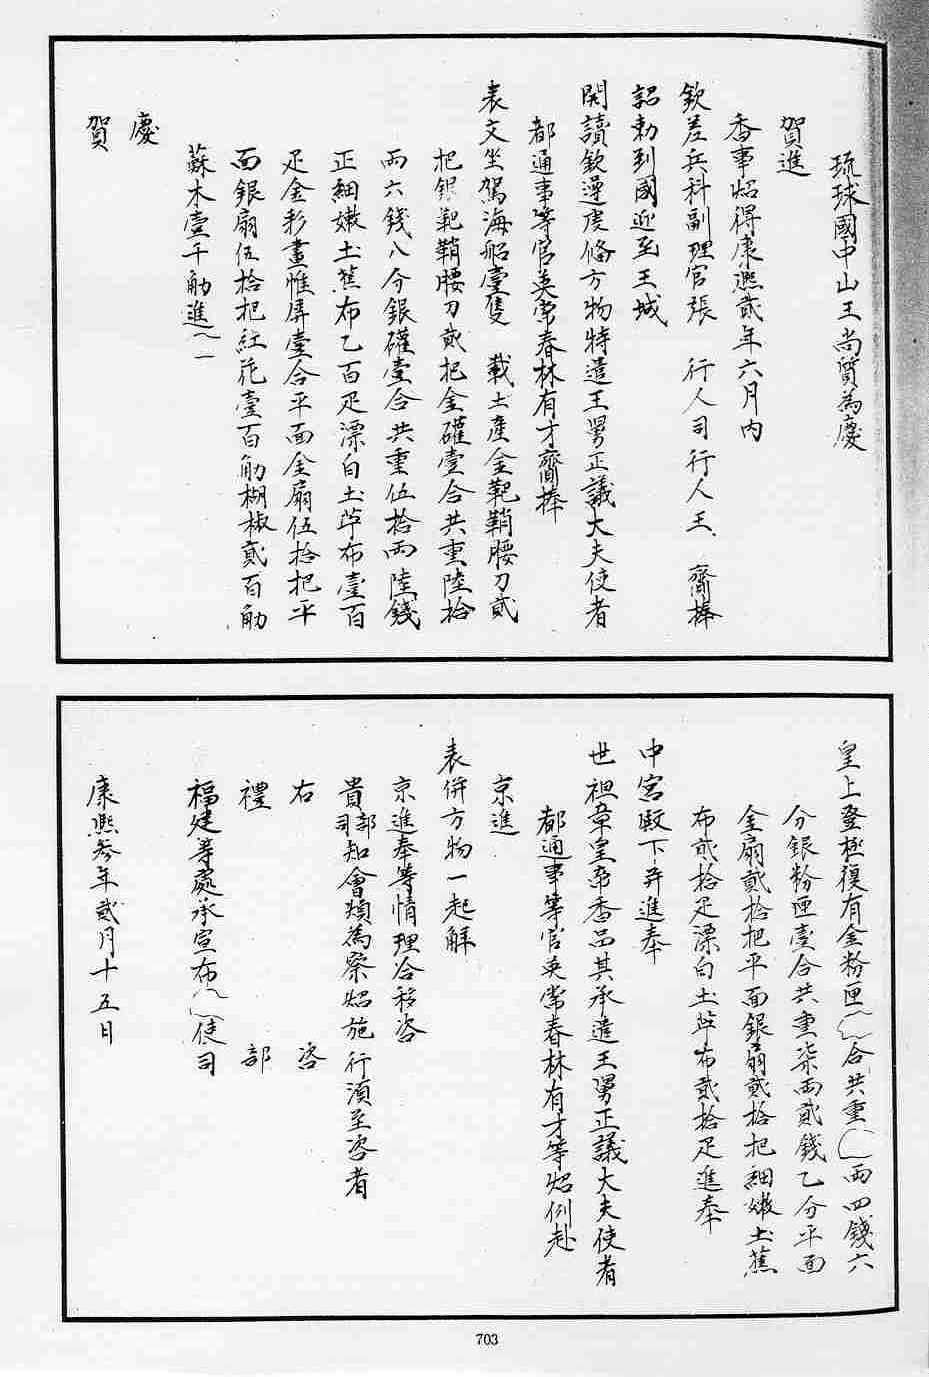 琉球國中山王尚質為慶
賀進
香事炤得康熙貳年六月內
欽差兵科副理官張　行人司行人王　齎捧
詔勅到國迎至王城
開讀欽遵虔俻方物特遣王舅正議大夫使者
都通事等官英常春林有才齎捧
表文坐駕海船壹隻　載土產金靶鞘腰刀貳
把銀靶鞘腰刀貳把金礶壹合共重陸拾
兩六錢八分銀礶壹合共重伍拾兩陸錢
正細嫩土蕉布乙百疋漂白土苧布壹百
疋金彩畫帷屏壹合平面金扇伍拾把平
面銀扇伍拾把紅花壹百觔楜椒貳百觔
蘇木壹千觔進
慶
賀
皇上登極復有金粉匣　合共重　兩四錢六
分銀粉匣壹合共重柒兩貳錢乙分平面
金扇貳拾把平面銀扇貳拾把細嫩土蕉
布貳拾疋漂白土苧布貳拾疋進奉
中宮殿下并進奉
世祖章皇帝香品其承遣王舅正議大夫使者
都通事等官英常春林有才等炤例赴
京進
表併方物一起解
京進奉等情理合移咨
貴部司知會煩為察炤施行須至咨者
右　咨
禮　部
福建等處承宣布　使司
康熙參年貳月十五日
703